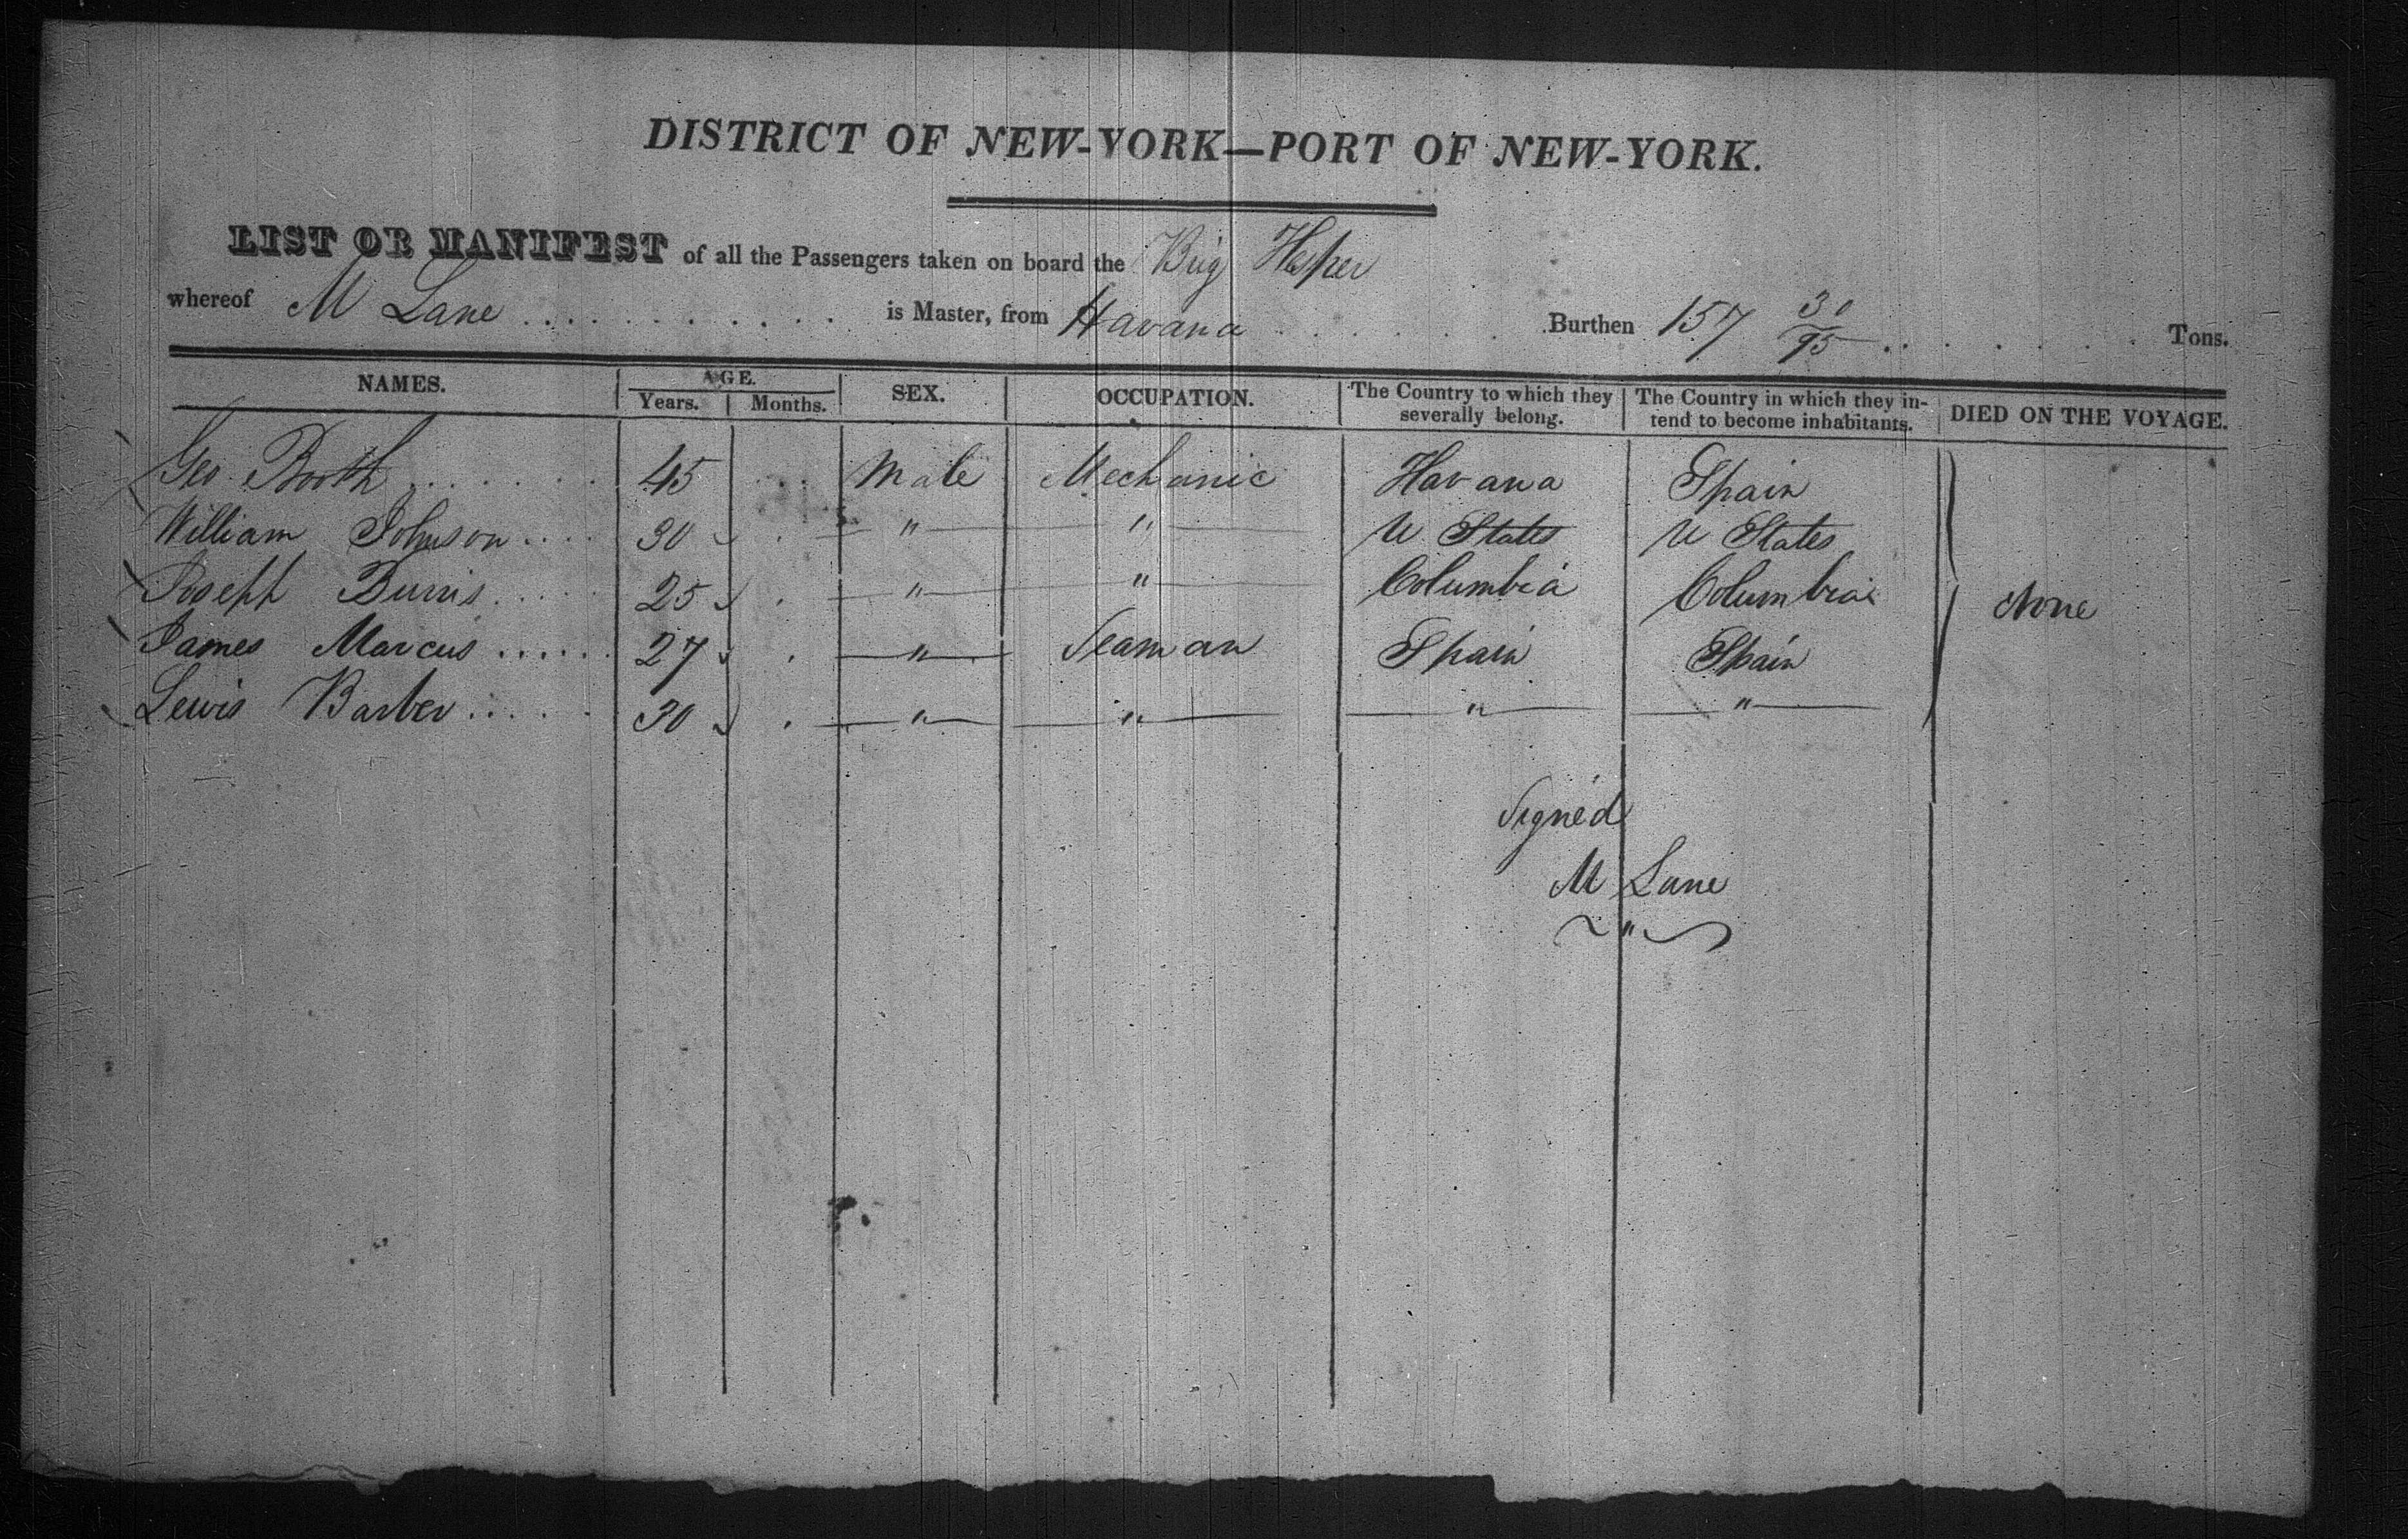 DISTRICT OF NEW-YORK—PORT OF NEW-YORK.
LIST OR MANIFEST of all the Passengers taken on board the Brig Hesper
whereof M Lane . . . . . . . . . . . is Master, from Havana . . . . . . . Burthen 157 30/95 . . . . . . . Tons.
NAMES. AGE. Years. Months. SEX. OCCUPATION. The Country to which they severally belong. The Country in which they intend to become inhabitants. DIED ON THE VOYAGE.
Geo. Booth . . . . . . . 45 . . Male Mechanic Havana Spain
William Johnson . . . . 30 . " " U States U States
Joseph Burris . . . . 25 . " " Columbia Columbia None
James Marcus . . . . . . 27 . " Seaman Spain Spain
Lewis Barber . . . . . 30 . " " " "
Signed
M Lane
"